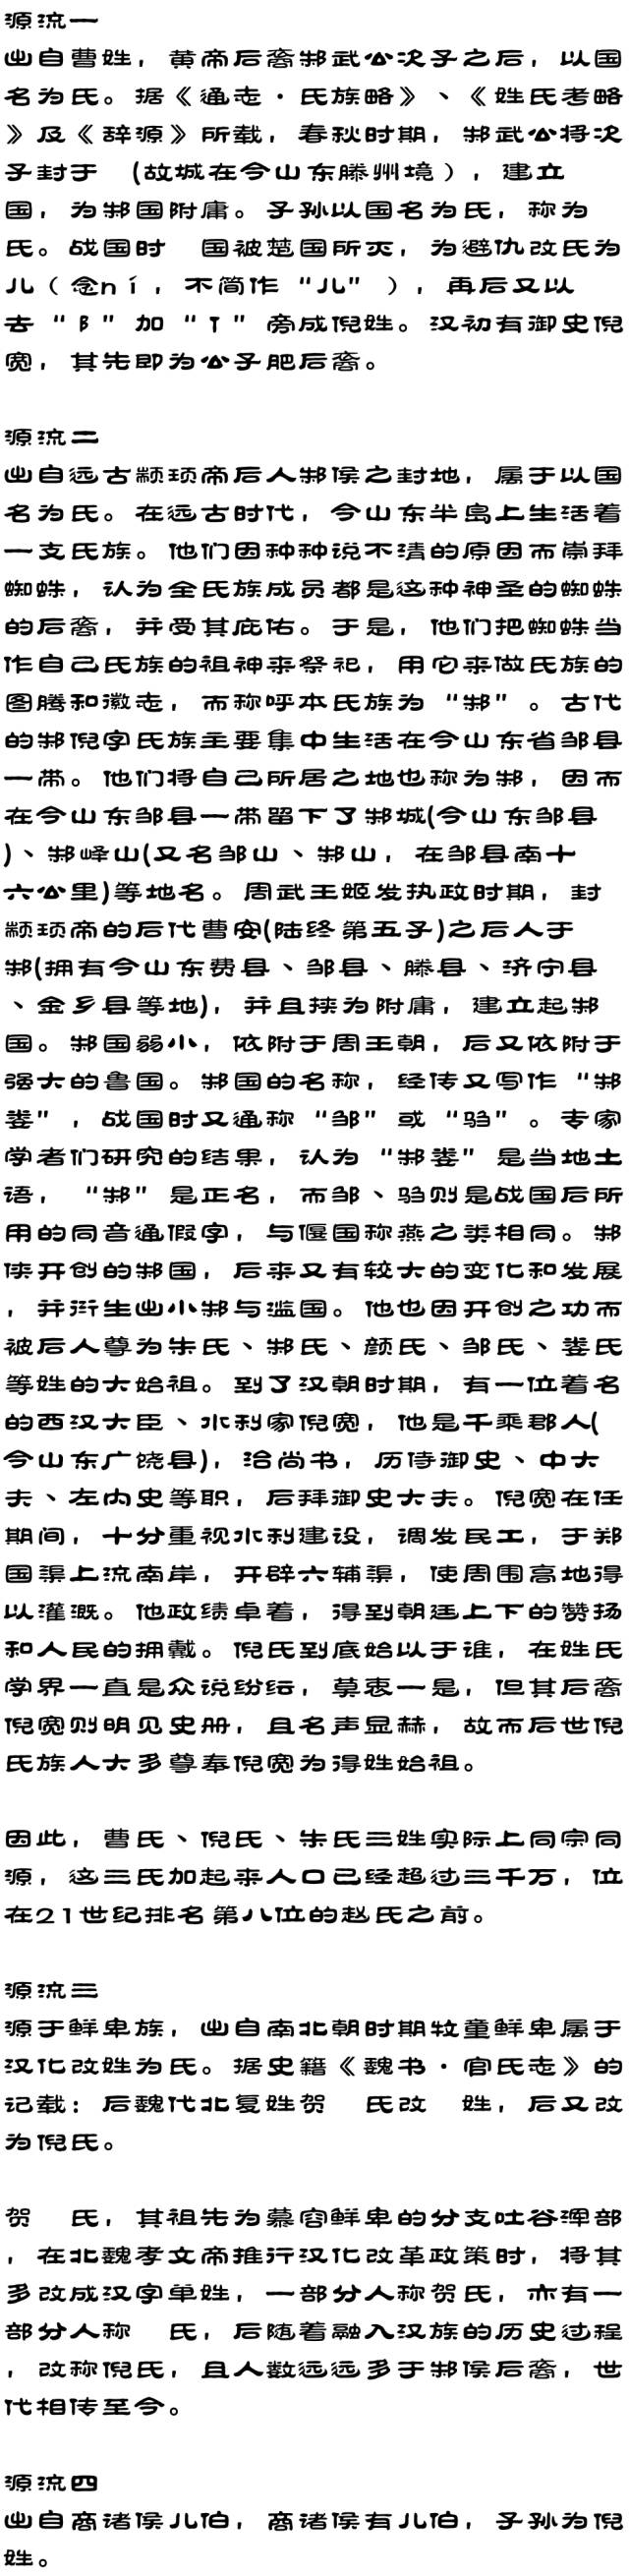 源流一
出自曹姓，黄帝后裔邾武公次子之后，以国
名为氏。据《通志·氏族略》、《姓氏考略
》及《辞源》所载，春秋时期，邾武公将次
子封于 (故城在今山东滕州境），建立
国，为邾国附庸。子孙以国名为氏，称为
氏。战国时 国被楚国所灭，为避仇改氏为
儿（念ní，不简作“儿”），再后又以
去“阝”加“亻”旁成倪姓。汉初有御史倪
宽，其先即为公子肥后裔。
源流二
出自远古颛顼帝后人邾侯之封地，属于以国
名为氏。在远古时代，今山东半岛上生活着
一支氏族。他们因种种说不清的原因而崇拜
蜘蛛，认为全氏族成员都是这种神圣的蜘蛛
的后裔，并受其庇佑。于是，他们把蜘蛛当
作自己氏族的祖神来祭祀，用它来做氏族的
图腾和徽志，而称呼本氏族为“邾”。古代
的邾倪字氏族主要集中生活在今山东省邹县
一带。他们将自己所居之地也称为邾，因而
在今山东邹县一带留下了邾城(今山东邹县
)、邾峄山(又名邹山、邾山，在邹县南十
六公里)等地名。周武王姬发执政时期，封
颛顼帝的后代曹安(陆终第五子)之后人于
邾(拥有今山东费县、邹县、滕县、济宁县
、金乡县等地)，并且挟为附庸，建立起邾
国。邾国弱小，依附于周王朝，后又依附于
强大的鲁国。邾国的名称，经传又写作“邾
娄”，战国时又通称“邹”或“驺”。专家
学者们研究的结果，认为“邾娄”是当地土
语，“邾”是正名，而邹、驺则是战国后所
用的同音通假字，与匽国称燕之类相同。邾
侠开创的邾国，后来又有较大的变化和发展
，并衍生出小邾与滥国。他也因开创之功而
被后人尊为朱氏、邾氏、颜氏、邹氏、娄氏
等姓的大始祖。到了汉朝时期，有一位着名
的西汉大臣、水利家倪宽，他是千乘郡人(
今山东广饶县)，治尚书，历侍御史、中大
夫、左内史等职，后拜御史大夫。倪宽在任
期间，十分重视水利建设，调发民工，于郑
国渠上流南岸，开辟六辅渠，使周围高地得
以灌溉。他政绩卓着，得到朝廷上下的赞扬
和人民的拥戴。倪氏到底始以于谁，在姓氏
学界一直是众说纷纭，莫衷一是，但其后裔
倪宽则明见史册，且名声显赫，故而后世倪
氏族人大多尊奉倪宽为得姓始祖。
因此，曹氏、倪氏、朱氏三姓实际上同宗同
源，这三氏加起来人口已经超过三千万，位
在21世纪排名第八位的赵氏之前。
源流三
源于鲜卑族，出自南北朝时期牧童鲜卑属于
汉化改姓为氏。据史籍《魏书·官氏志》的
记载：后魏代北复姓贺 氏改 姓，后又改
为倪氏。
贺 氏，其祖先为慕容鲜卑的分支吐谷浑部
，在北魏孝文帝推行汉化改革政策时，将其
多改成汉字单姓，一部分人称贺氏，亦有一
部分人称 氏，后随着融入汉族的历史过程
，改称倪氏，且人数远远多于邾侯后裔，世
代相传至今。
源流四
出自商诸侯儿伯，商诸侯有儿伯，子孙为倪
姓。